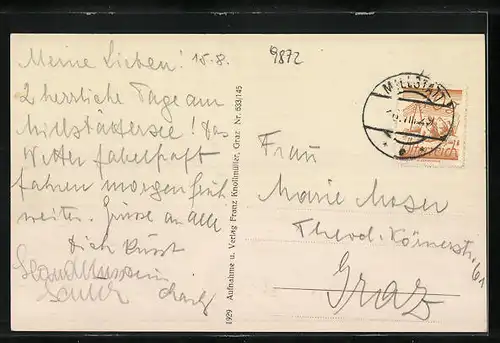 Meine Lieben! 15.8.
2 herrliche Tage am
Millstättersee! Das
Wetter fabelhaft
fahren morgen früh
weiter. Grüsse an alle
Dich küsst
1929 Aufnahme u. Verlag Franz Knollmüller, Graz Nr. 633/145
9872
MILLSTATT
Frau
Marie Moser
Theod. Körnerstr. 61
Graz